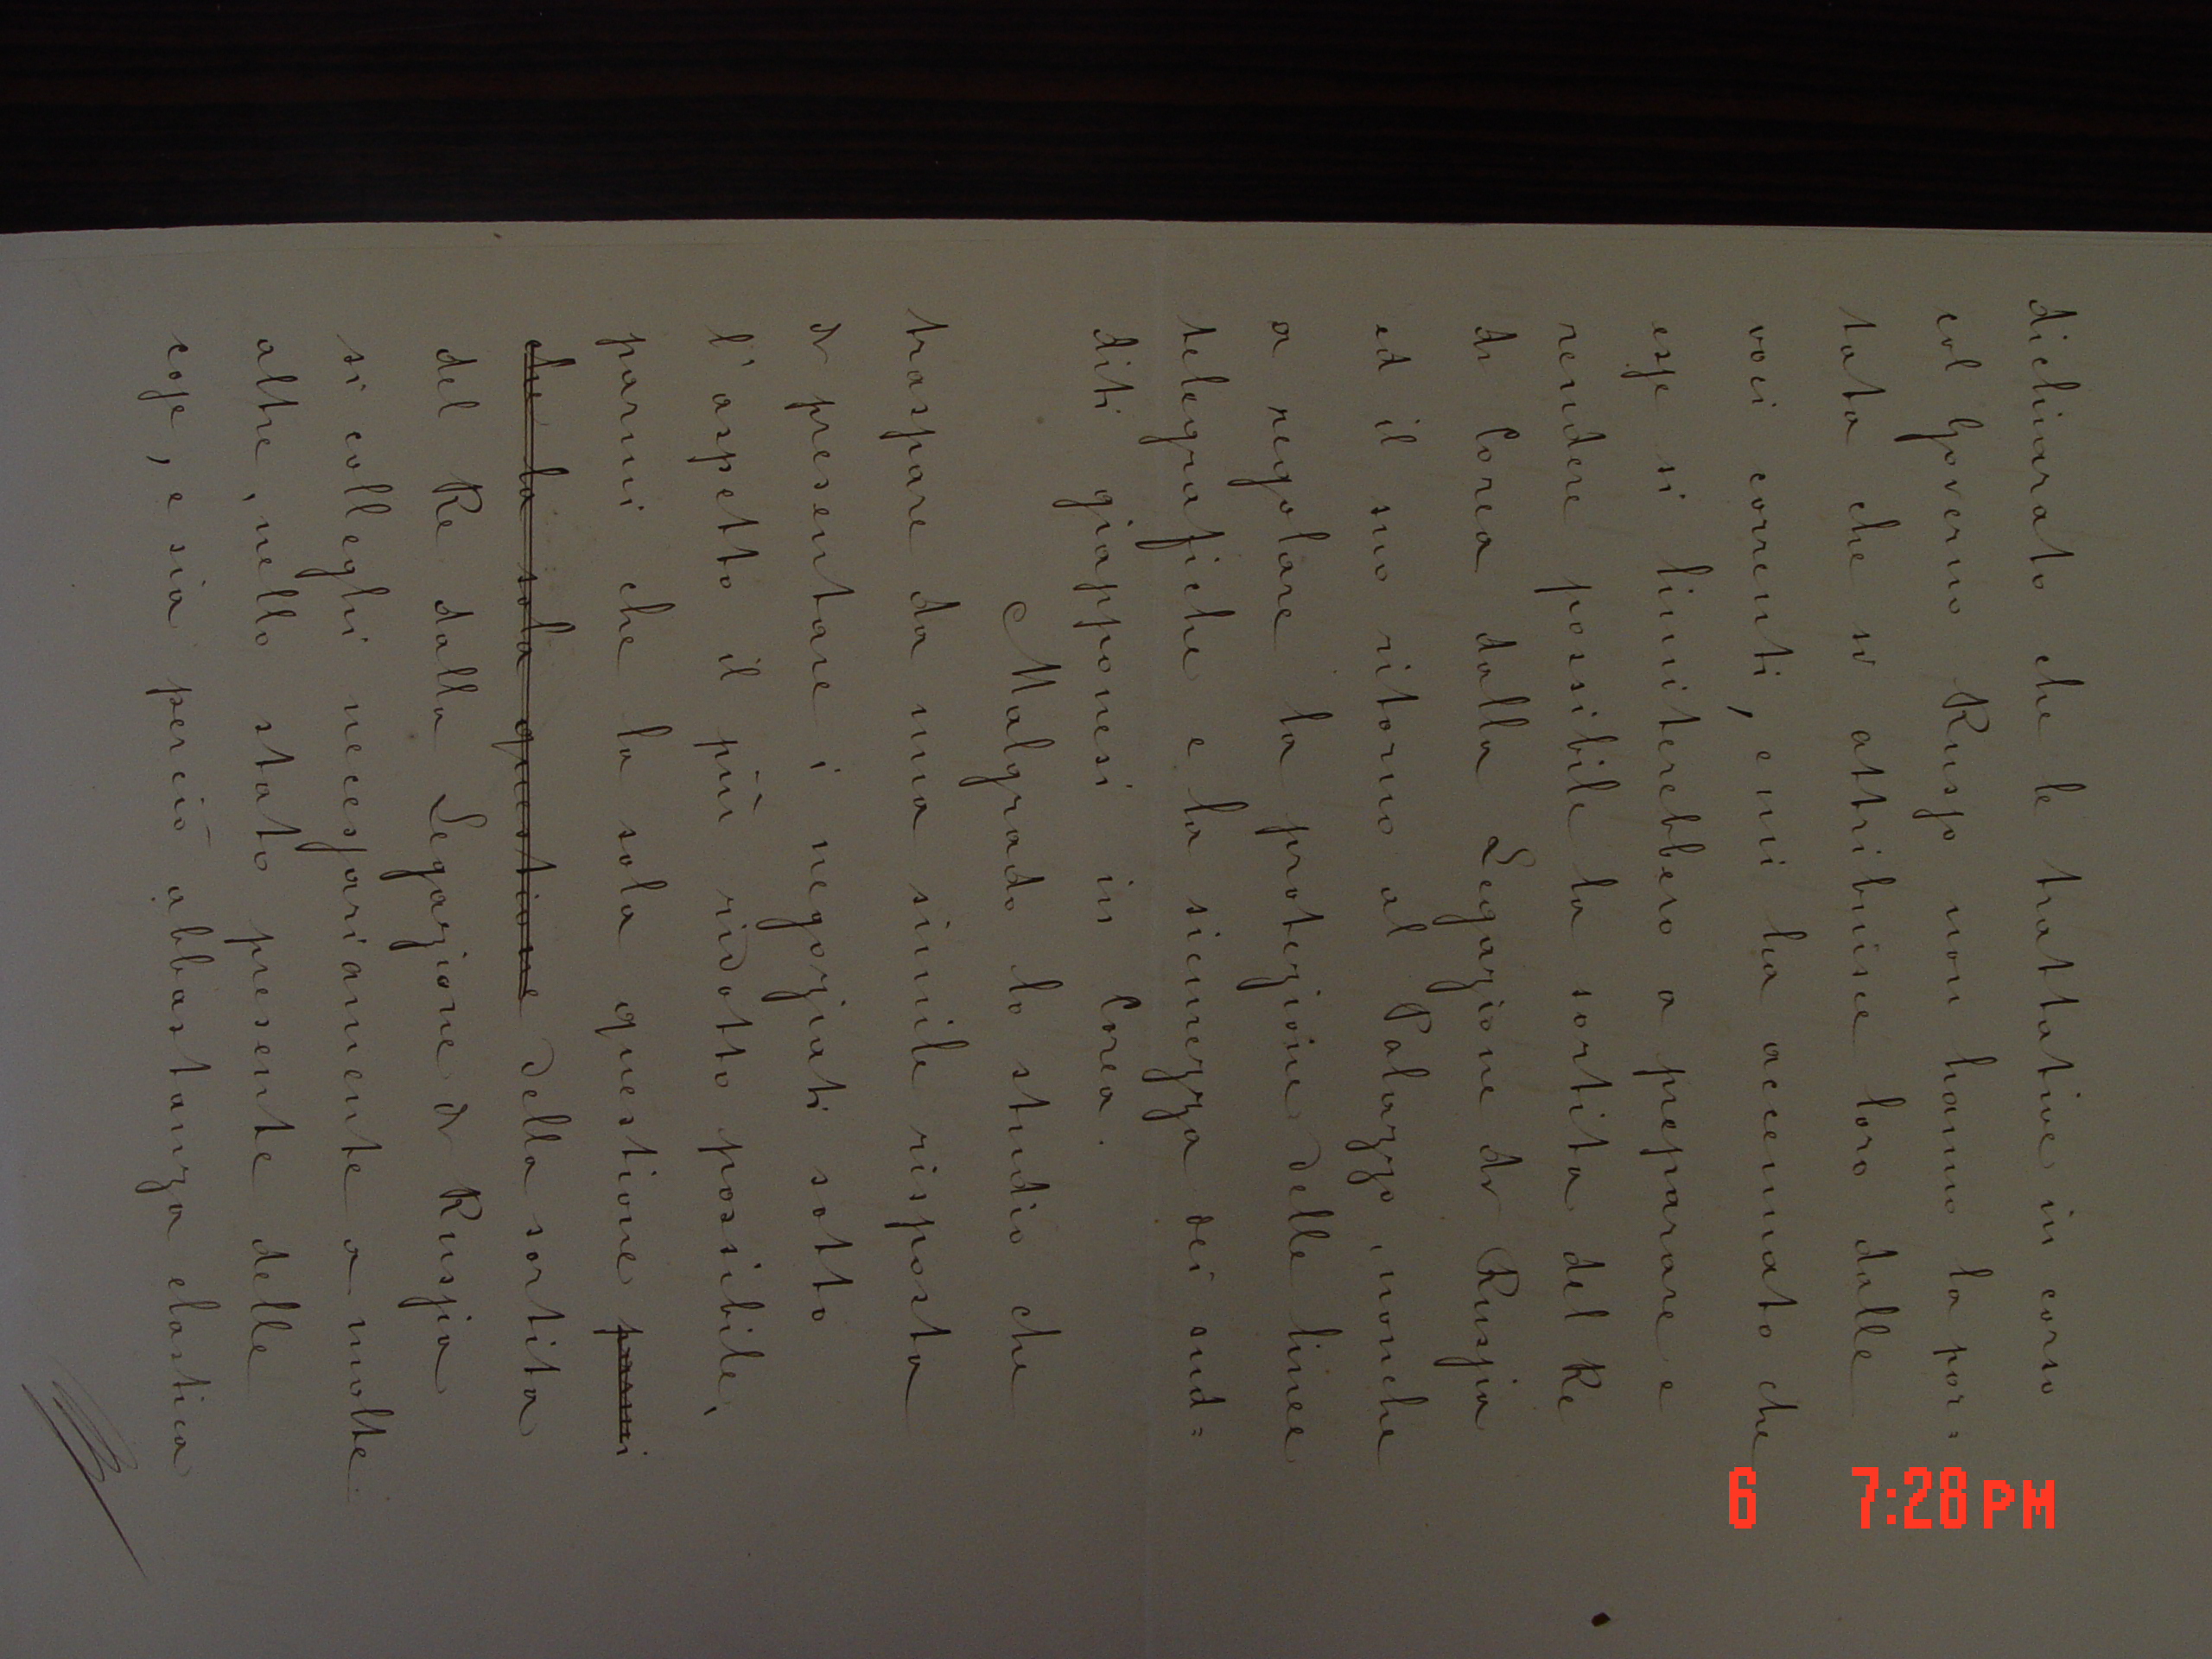 dichiarato che le trattative in corso
col Governo Russo non hanno la por=
tata che si attribuisce loro dalle
voci correnti, e mi ha accennato che
esse si limiterebbero a preparare e
rendere possibile la sortita del Re
di Corea dalla Legazione di Russia
ed il suo ritorno al Palazzo, nonche
a regolare la protezione delle linee
telegrafiche e la sicurezza dei sud=
diti giapponesi in Corea.
Malgrado lo studio che
traspare da una simile risposta
di presentare i negoziati sotto
l'aspetto il più ridotto possibile,
parmi che la sola questione parmi
che la sola questione della sortita
del Re dalla Legazione di Russia
si colleghi necessariamente a molte
altre, nello stato presente delle
cose, e sia perciò abbastanza elastica
6 7:28 PM